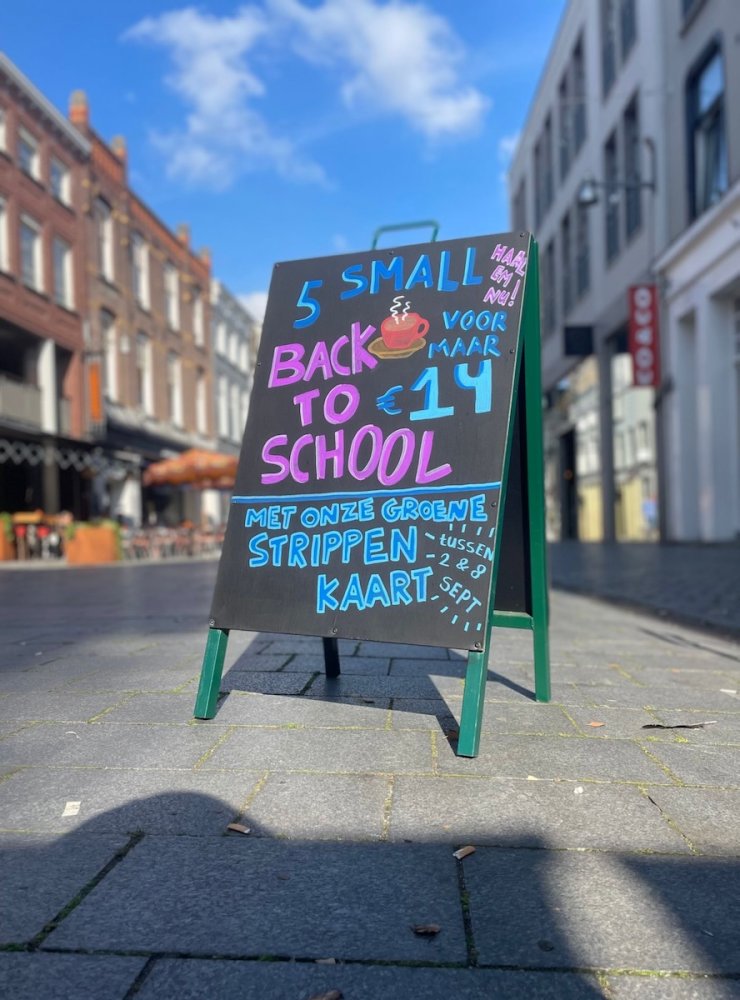 5 SMALL
HAAL
EM
NU!
BACK
TO
SCHOOL
VOOR
MAAR
€14
MET ONZE GROENE
STRIPPEN
KAART
tUSSEN
2 & 8
SEPT